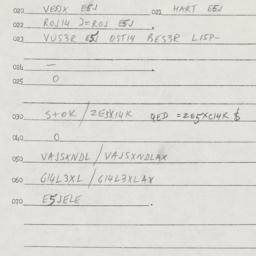 020 VESIX E5J 021 HART E5J
022 ROJ14 J=ROJ E5J .
023 VUS3R E5J OST14 BES3R LISP-
024 — .
025 0
030 S+OK / ZE5X14K QED = ZE5XC14K $
040 0
050 VAJ5XNDL / VAJ5XNDLAX
060 G14L3XL / G14L3XLAX
070 E5JELE .